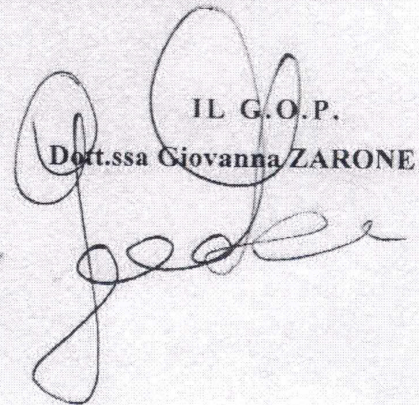 IL G.O.P.
Dott.ssa Giovanna ZARONE